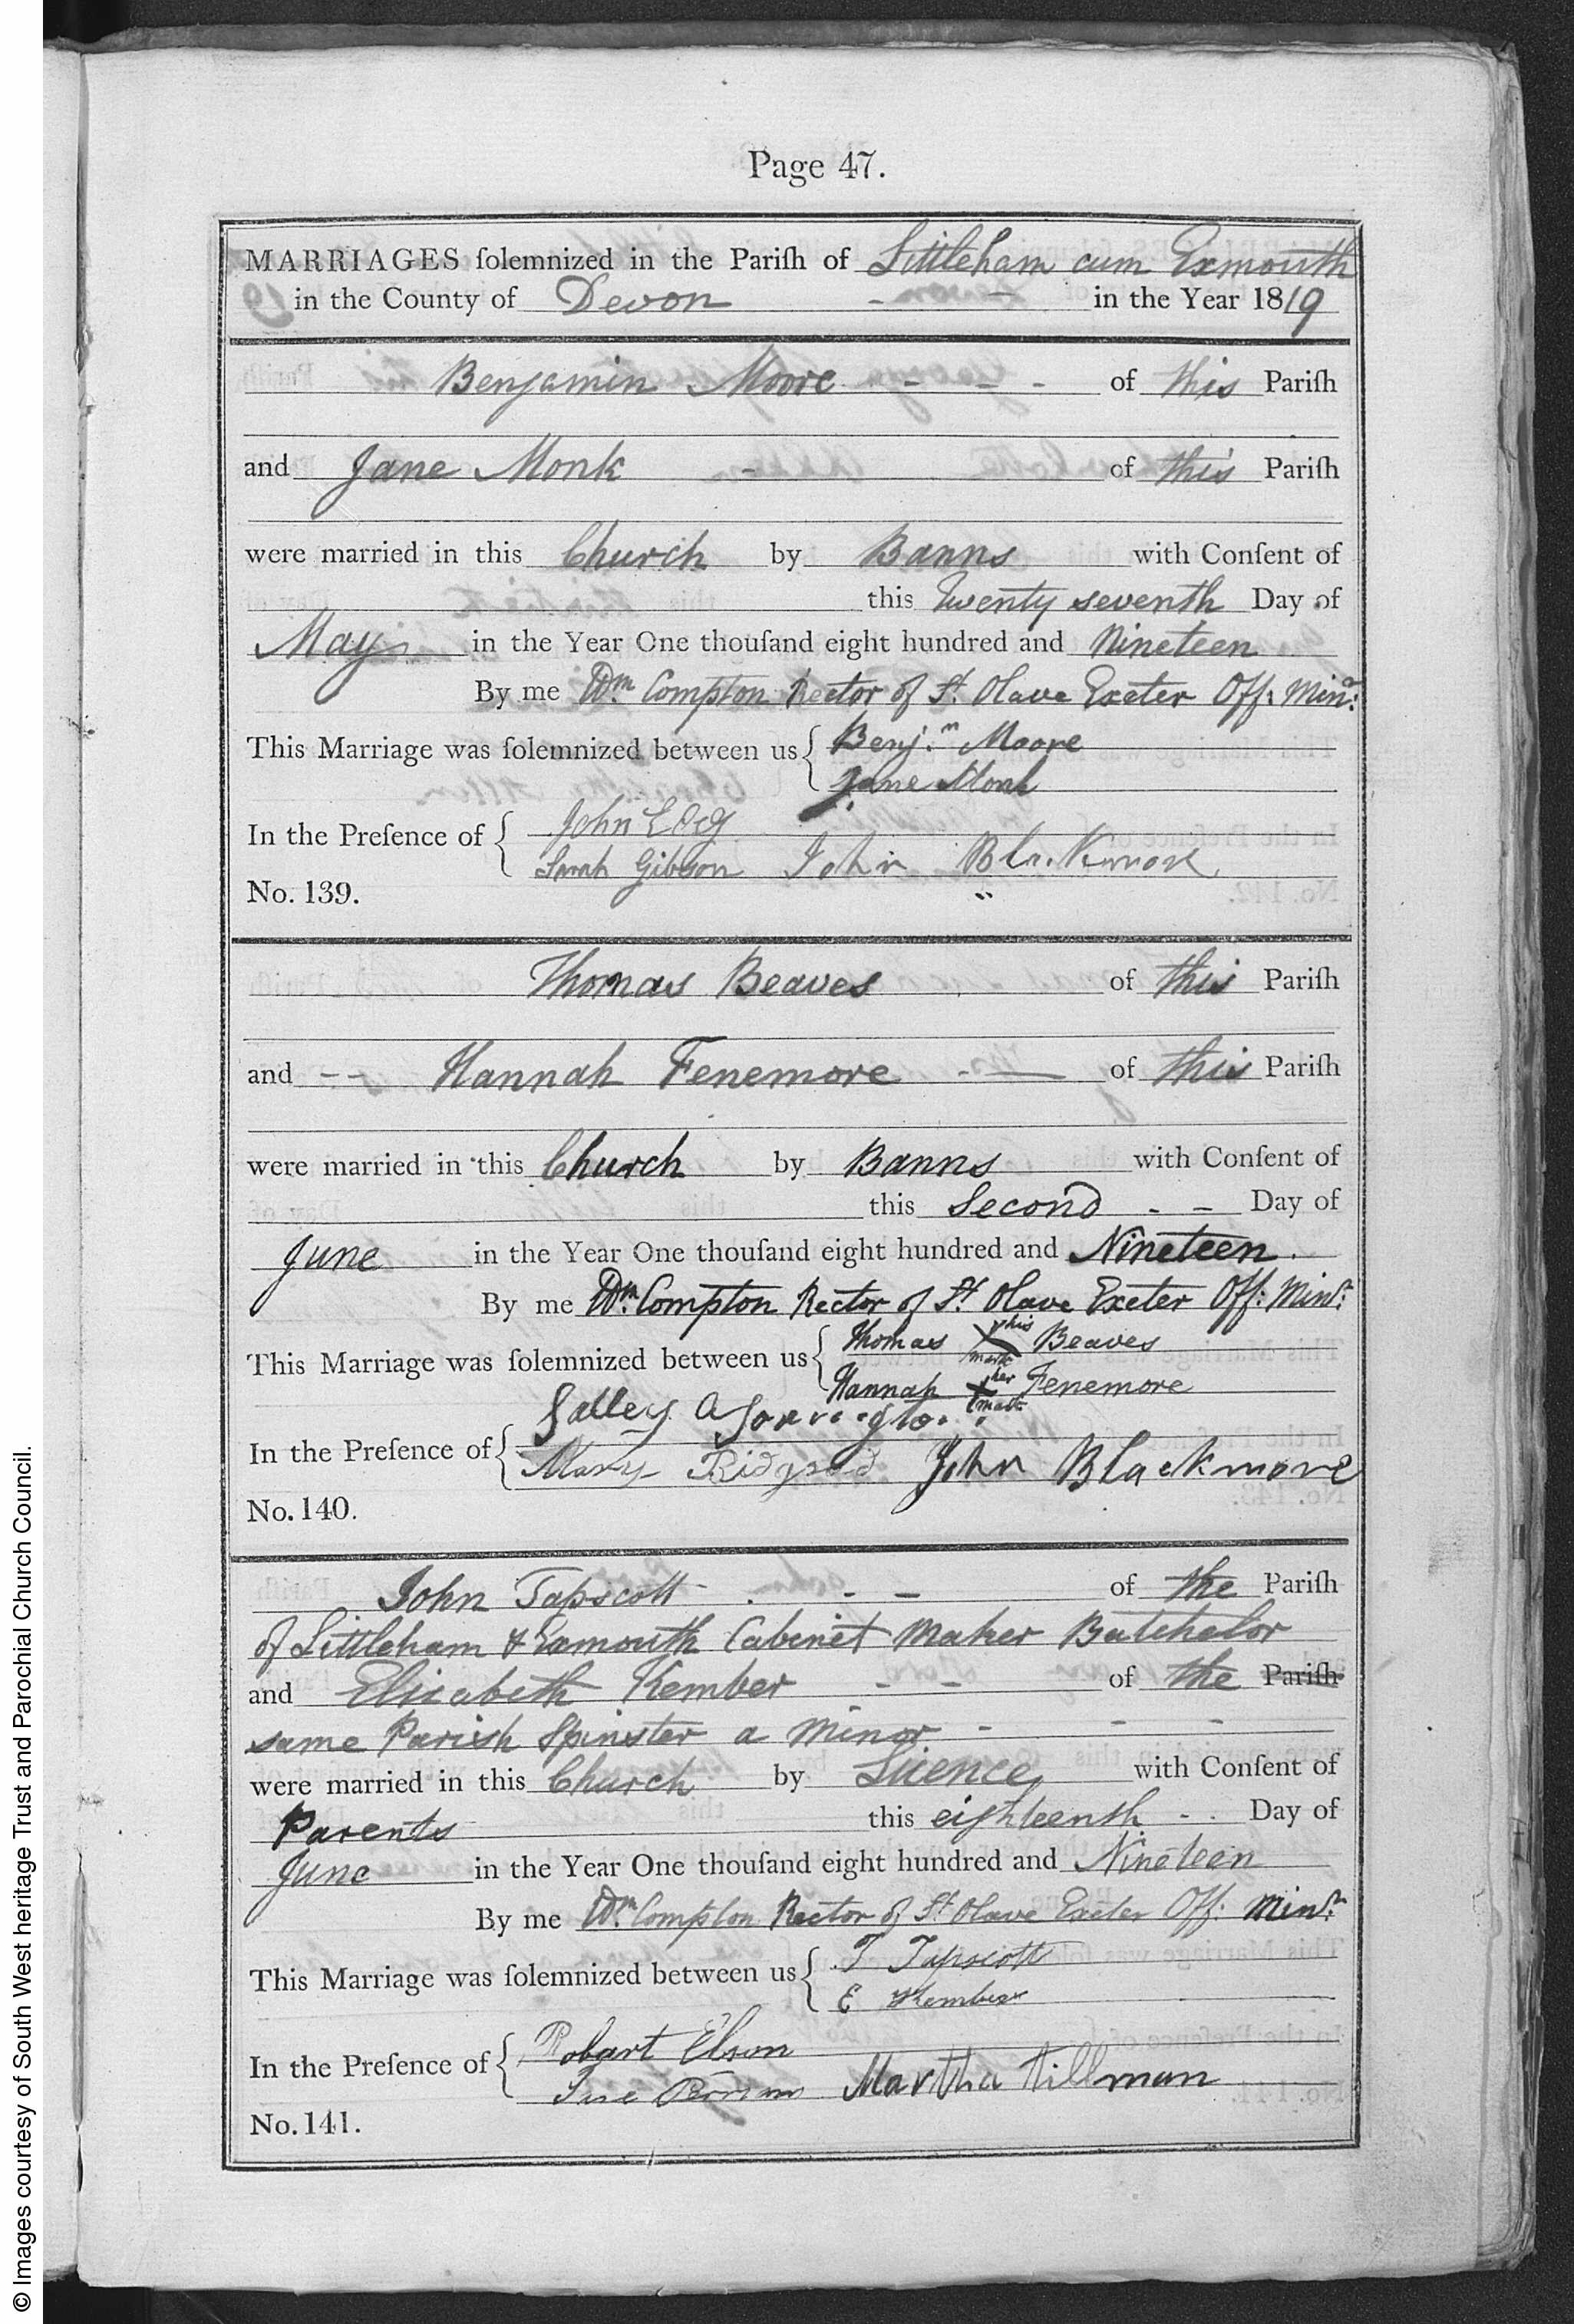 Page 47.
MARRIAGES ſolemnized in the Pariſh of Littleham cum Exmouth
in the County of Devon in the Year 1819
Benjamin Moore - - - of this Pariſh
and Jane Monk - of this Pariſh
were married in this Church by Banns with Conſent of
this Twenty seventh Day of
May in the Year One thouſand eight hundred and Nineteen
By me Wm. Compton Rector of St. Olave Exeter Off: Minr:
This Marriage was ſolemnized between us { Benj.n Moore
Jane Monk
In the Preſence of { John
Sarah Gibson John Blackmore
No. 139.
Thomas Beaves of this Pariſh
and -- Hannah Fenemore - — of this Pariſh
were married in this Church by Banns with Conſent of
this Second - - Day of
June in the Year One thouſand eight hundred and Nineteen.
By me Wm. Compton Rector of St. Olave Exeter Off: Minr:
This Marriage was ſolemnized between us { Thomas X his mark Beaves
Hannah X her mark Fenemore
Salley
In the Preſence of { Mary John Blackmore
No. 140.
John Tapscott - - - of the Pariſh
of Littleham & Exmouth Cabinet Maker Batchelor
and Elizabeth Kember - - of the Pariſh
same Parish Spinster a Minor - - -
were married in this Church by Licence with Conſent of
Parents this eighteenth - - Day of
June in the Year One thouſand eight hundred and Nineteen
By me Wm. Compton Rector of St. Olave Exeter Off: Minr:
This Marriage was ſolemnized between us { J Tapscott
E Kember
In the Preſence of { Robart Elson
Martha Tillman
No. 141.
© Images courtesy of South West heritage Trust and Parochial Church Council.